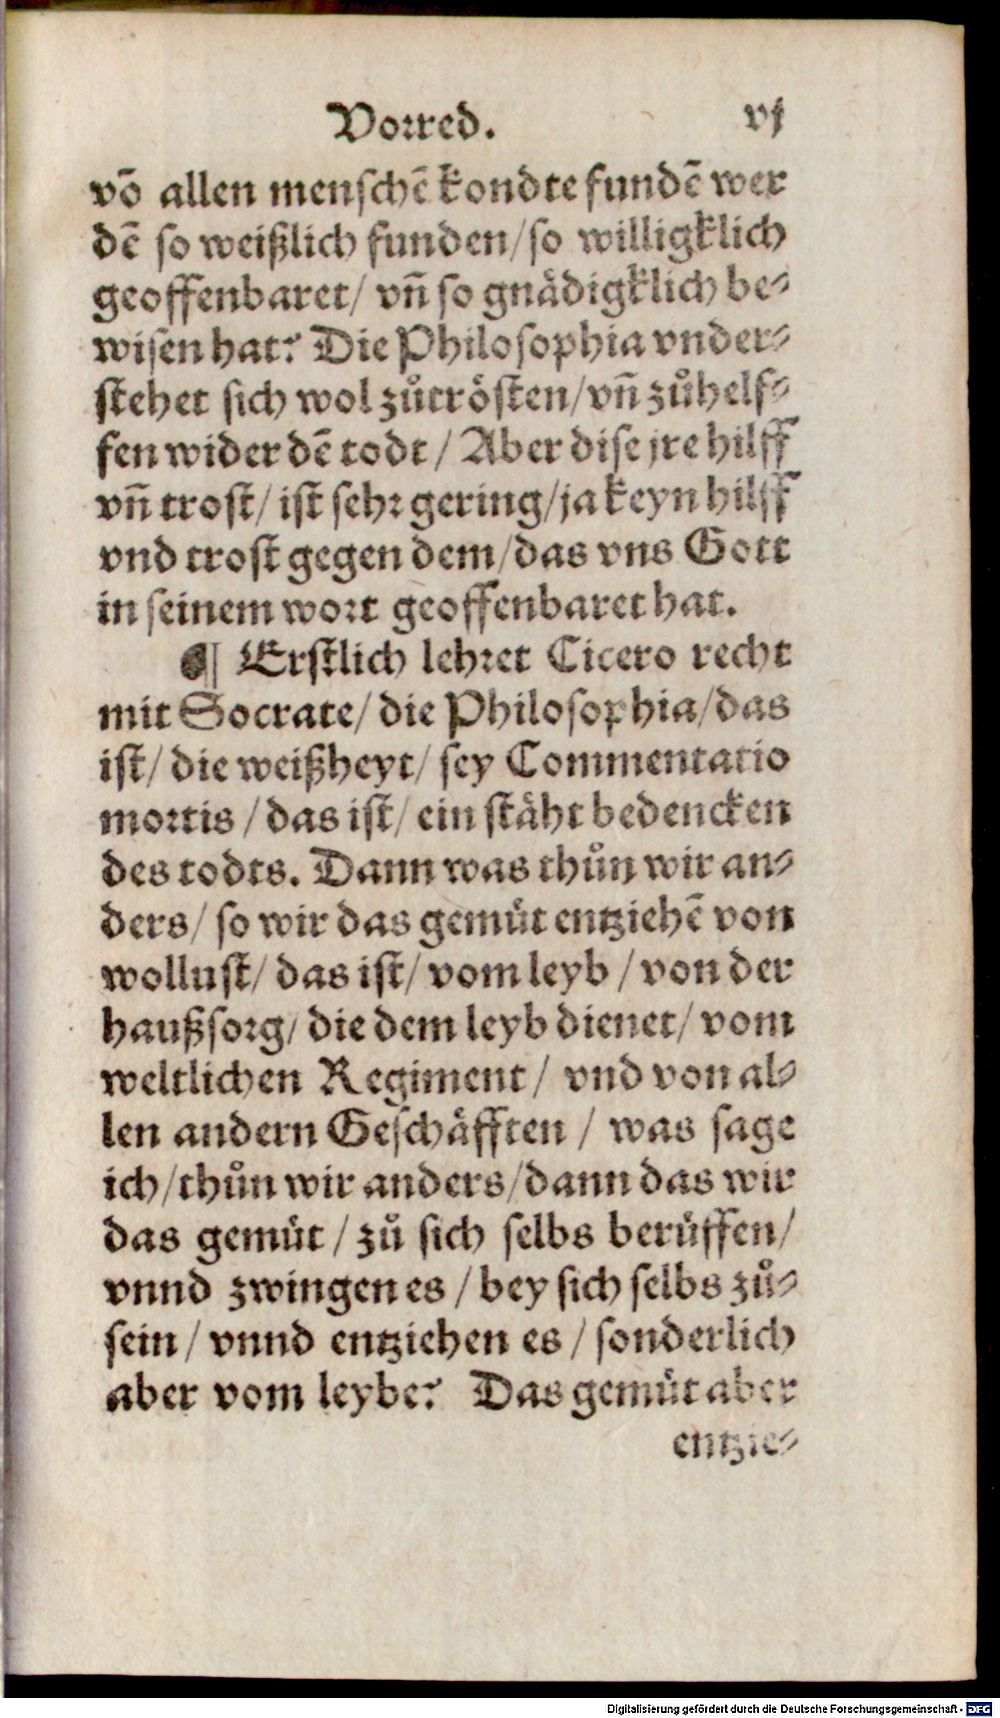 Vorred. vj
võ allen menschẽ kondte fundẽ wer
dẽ so weißlich funden/so willigklich
geoffenbaret/ vñ so gnädigklich be-
wisen hat? Die Philosophia vnder-
stehet sich wol zůtrösten/vñ zůhelf-
fen wider dẽ todt / Aber dise jre hilff
vñ trost/ ist sehr gering/ja keyn hilff
vnd trost gegen dem/das vns Gott
in seinem wort geoffenbaret hat.
¶ Erstlich lehret Cicero recht
mit Socrate/ die Philosophia/das
ist/ die weißheyt/ sey Commentatio
mortis / das ist/ ein stäht bedencken
des todts. Dann was thůn wir an-
ders/ so wir das gemüt entziehẽ von
wollust/ das ist/ vom leyb / von der
haußsorg/ die dem leyb dienet/ vom
weltlichen Regiment / vnd von al-
len andern Geschäfften / was sage
ich/thůn wir anders/dann das wir
das gemüt / zů sich selbs berůffen/
vnnd zwingen es / bey sich selbs zů-
sein / vnnd entziehen es / sonderlich
aber vom leybe? Das gemüt aber
entzie-
Digitalisierung gefördert durch die Deutsche Forschungsgemeinschaft - DFG